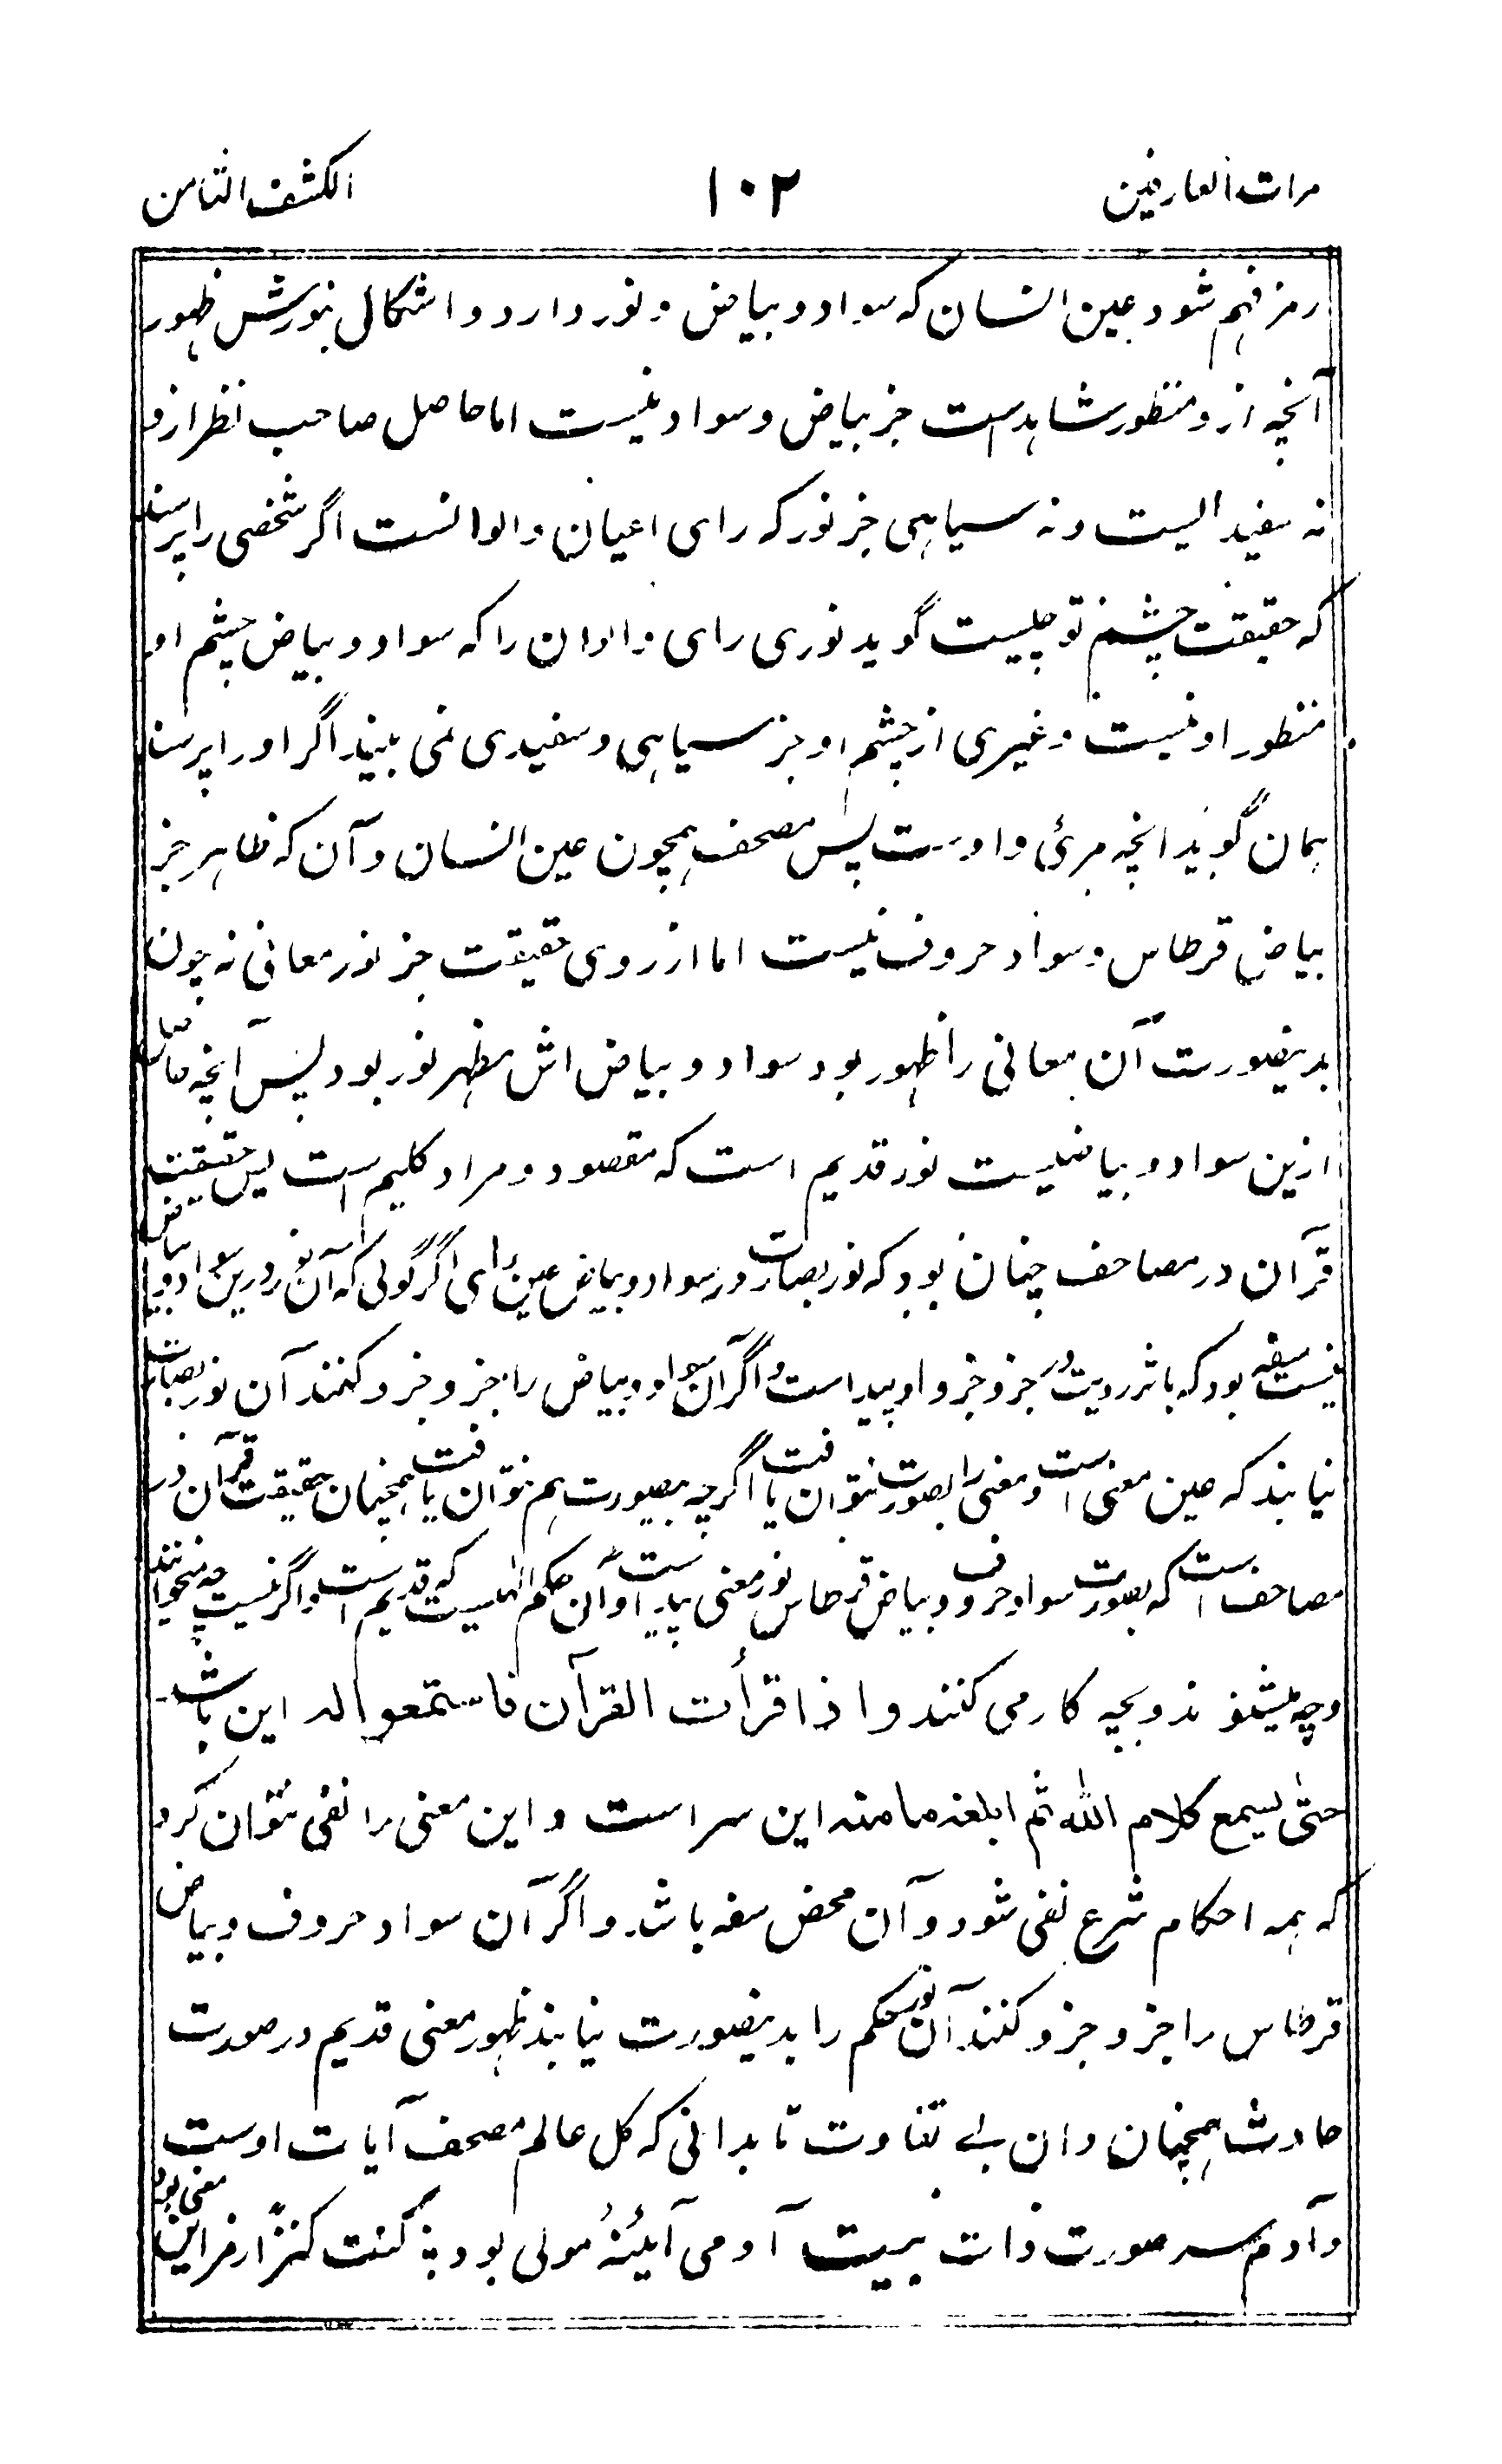 مرات العارفین ۱۰۲ الکشف الثامن
رمز فهم شود عین انسان که سواد و بیاض و نور دارد و اشکال بنورش ظهور
آنچه از و منظور شاهدست جز بیاض و سواد نیست اما حاصل صاحب نظر ازو
نه سفیدالیست و نه سیاهی جز نور که رای اعیان و الوانست اگر شخصی را پرسند
که حقیقت چشم تو چیست گوید نوری رای و ادان را که سواد و بیاض چشم او
منظور او نیست و غیری از چشم او جز سیاهی و سفیدی نمی بیند اگر او را پرسند
همان گوید انچه مرئ و اوست پس مصحف همچون عین انسان و آن که ظاهر جز
بیاض قرطاس و سواد حروف نیست اما از روی حقیقت جز نور معانی نه چون
بدینصورت آن معانی را ظهور بود سواد و بیاض اش مظهر نور بود پس آنچه حاصل
ازین سواد و بیاضیست نور قدیم است که مقصود و مراد کلیم است پس حقیقت
قرآن در مصاحف چنان بود که نور بصارت در سواد و بیاض عین ای اگر گوئی که آن نور درین سواد و بیاض
نیست سفه بود که باثر رویت در جز و جز و او پیداست و اگر آن سواد و بیاض را جز و جز و کنند آن نور بصارت
نیابند که عین معنی است و معنی را بصورت نتوان یافت اگرچه بصورت هم نتوان یافت همچنان حقیقت قرآن در
مصاحف است که بصورت سواد حروف و بیاض قرطاس نور معنی پیداست و آن حکم الهیست که قدیم است و اگر نیست چه میخوانند
و چه میشنوند و بچه کار می کنند و اذا قرأت القرآن فاستمعوا له این باشد
حتی یسمع کلام الله ثم ابلغه مامنه این سر است و این معنی را نفی نتوان کرد
که همه احکام شرع نفی شود و آن محض سفه باشد و اگر آن سواد حروف و بیاض
قرطاس را جز و جز و کنند آن نور حکم را بدینصورت نیابند ظهور معنی قدیم در صورت
حادث همچنان دان بے تفاوت تا بدانی که کل عالم مصحف آیات اوست
و آدم سر صورت ذات بیت آدمی آیئنهٔ مولی بود ؛ کنت کنزًا رمز این معنی بود